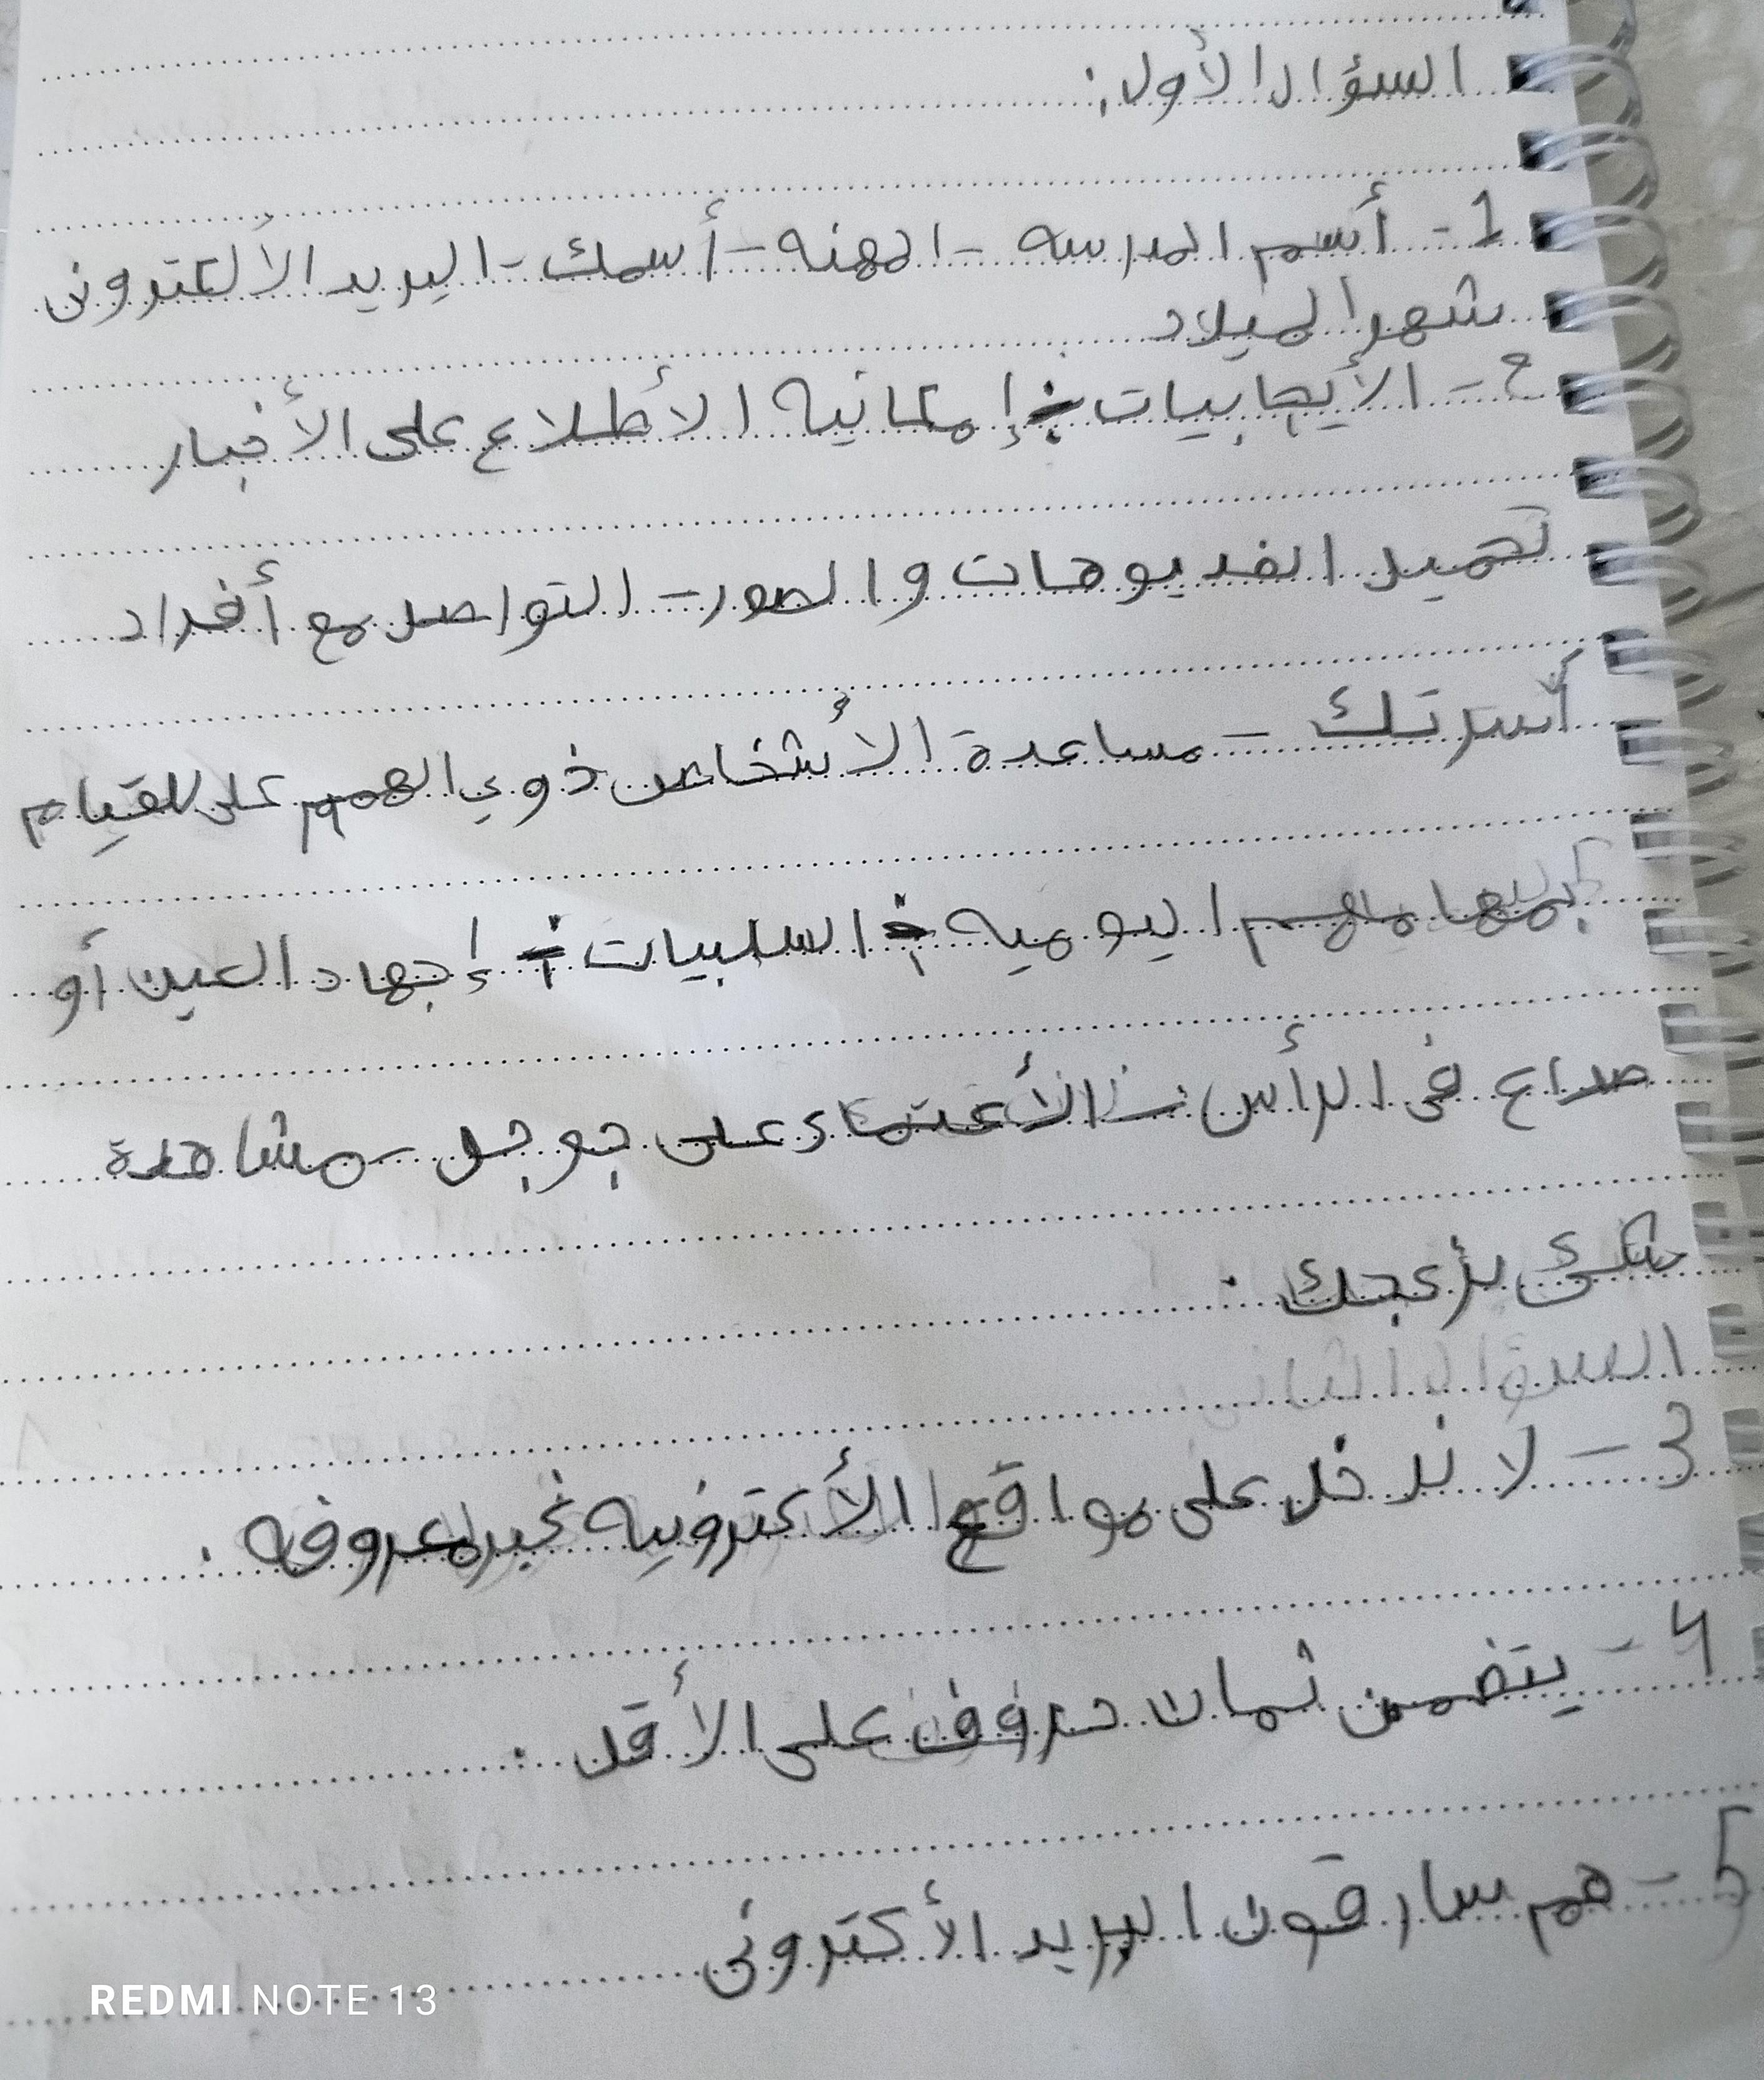 السؤال الأول:
1- أسم المدرسه - المهنه - أسمك - البريد الألكتروني
شهر الميلاد
2- الأيجابيات إمكانيه الأطلاع على الأخبار
تحميل الفديوهات والصور - التواصل مع أفراد
أسرتك - مساعدة الأشخاص ذوي الهمم على القيام
اليوميه السلبيات إجهاد العين أو
صداع فى الرأس - الأعتماد على جوجل - مشاهدة
شىء يزعجك.
السؤال الثاني
3- لا ندخل على مواقع الأكترونيه غير معروفه.
4- يتضمن ثمان حروف على الأقل.
5- هم سارقون البريد الأكترونى
REDMI NOTE 13